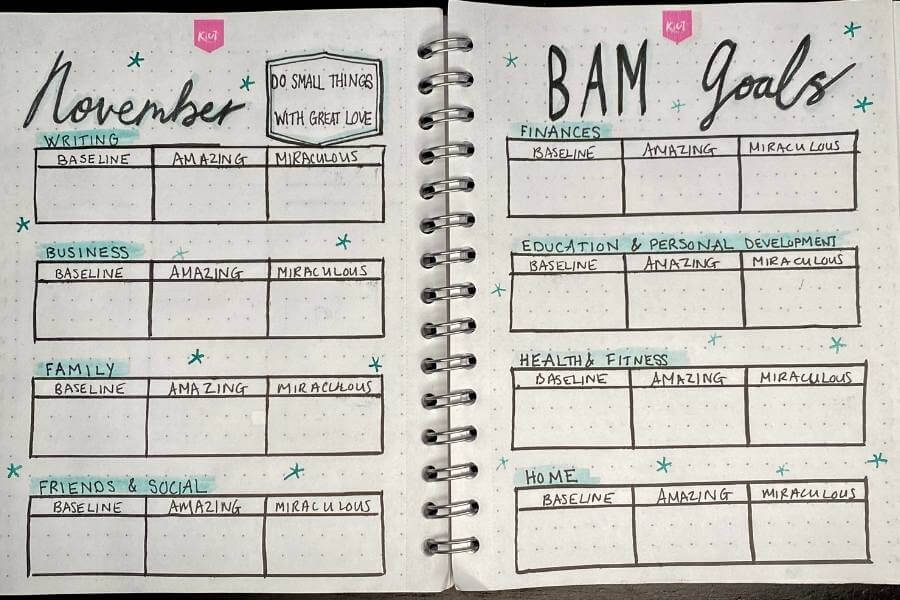 KiCT
November
DO SMALL THINGS
WITH GREAT LOVE
WRITING
BASELINE AMAZING MIRACULOUS
BUSINESS
BASELINE AMAZING MIRACULOUS
FAMILY
BASELINE AMAZING MIRACULOUS
FRIENDS & SOCIAL
BASELINE AMAZING MIRACULOUS
KiCT
BAM Goals
FINANCES
BASELINE AMAZING MIRACULOUS
EDUCATION & PERSONAL DEVELOPMENT
BASELINE AMAZING MIRACULOUS
HEALTH & FITNESS
BASELINE AMAZING MIRACULOUS
HOME
BASELINE AMAZING MIRACULOUS